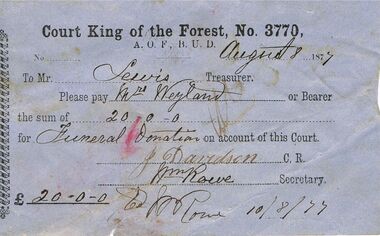 Court King of the Forest, No. 3770,
A. O. F., B. U. D.
No. August 8 1877
To Mr. Lewis Treasurer.
Please pay Mrs Weyland or Bearer
the sum of 20-0-0
for Funeral Donation on account of this Court.
J Davidson C. R.
Wm Rowe Secretary.
£ 20-0-0
Rowe 10/8/77